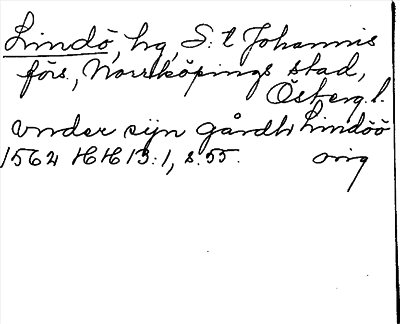 Lindö, hg, S:t Johannis
förs., Norrköpings stad,
Östergl.
vnder sijn gårdh Lindöö
1562 HH 13:1, s. 55. orig